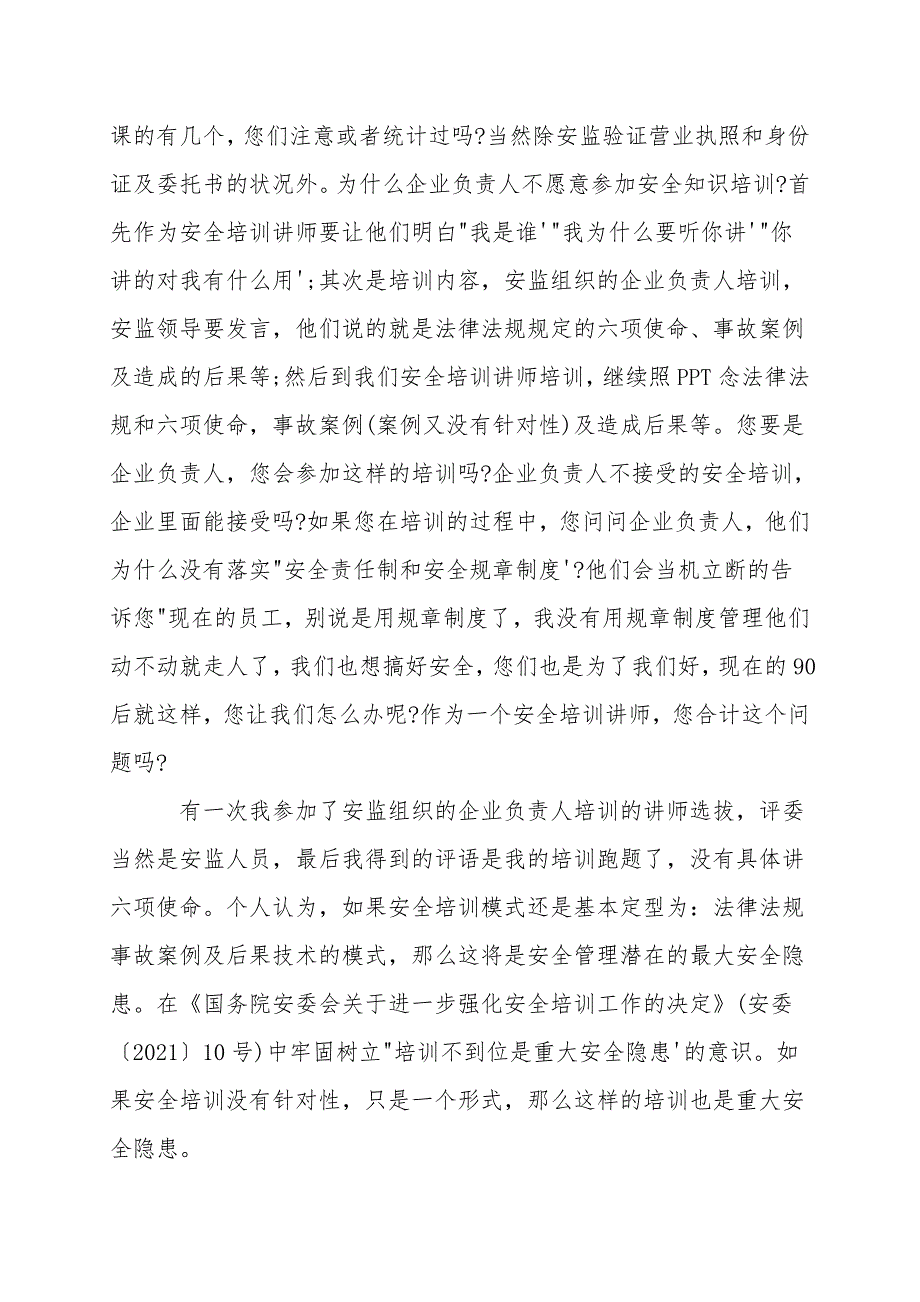 课的有几个，您们注意或者统计过吗?当然除安监验证营业执照和身份
证及委托书的状况外。为什么企业负责人不愿意参加安全知识培训?首
先作为安全培训讲师要让他们明白"我是谁'"我为什么要听你讲'"你
讲的对我有什么用';其次是培训内容，安监组织的企业负责人培训，
安监领导要发言，他们说的就是法律法规规定的六项使命、事故案例
及造成的后果等;然后到我们安全培训讲师培训，继续照 PPT 念法律法
规和六项使命，事故案例(案例又没有针对性)及造成后果等。您要是
企业负责人，您会参加这样的培训吗?企业负责人不接受的安全培训，
企业里面能接受吗?如果您在培训的过程中，您问问企业负责人，他们
为什么没有落实"安全责任制和安全规章制度'?他们会当机立断的告
诉您"现在的员工，别说是用规章制度了，我没有用规章制度管理他们
动不动就走人了，我们也想搞好安全，您们也是为了我们好，现在的 90
后就这样，您让我们怎么办呢?作为一个安全培训讲师，您合计这个问
题吗?
有一次我参加了安监组织的企业负责人培训的讲师选拔，评委
当然是安监人员，最后我得到的评语是我的培训跑题了，没有具体讲
六项使命。个人认为，如果安全培训模式还是基本定型为：法律法规
事故案例及后果技术的模式，那么这将是安全管理潜在的最大安全隐
患。在《国务院安委会关于进一步强化安全培训工作的决定》(安委
〔2021〕10 号)中牢固树立"培训不到位是重大安全隐患'的意识。如
果安全培训没有针对性，只是一个形式，那么这样的培训也是重大安
全隐患。